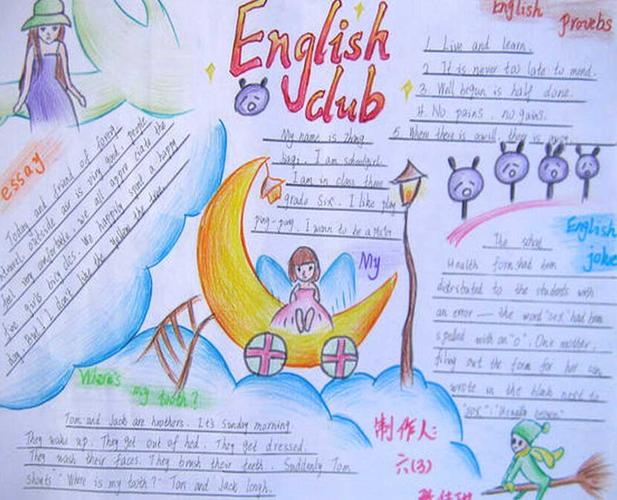 English club
English Proverbs
1. Live and learn.
2. It is never too late to mend.
3. Well begun is half done.
4. No pains, no gains.
5. Where there is a will, there is
My name is Zhang
I am schoolgirl.
I am in class three
grade six. I like play
ping-pong. I want to be a
My
essay
Today and friend of
travel, outside air is very good, people
feel very comfortable, we all the
girls We happily spend a happy
day. But I don't like the the
English joke
The school
Health form had been
distributed to the students with
an error — the word "sex" had been
spelled with an "o". One mother,
filling out the form for her son,
wrote in the blank next to
Where's my tooth?
Tom and Jack are brothers. It's Sunday morning.
They wake up. They get out of bed. They get dressed.
They wash their faces. They brush their teeth. Suddenly Tom
shouts "Where is my tooth?" Tom and Jack laugh.
制作人:
六(3)